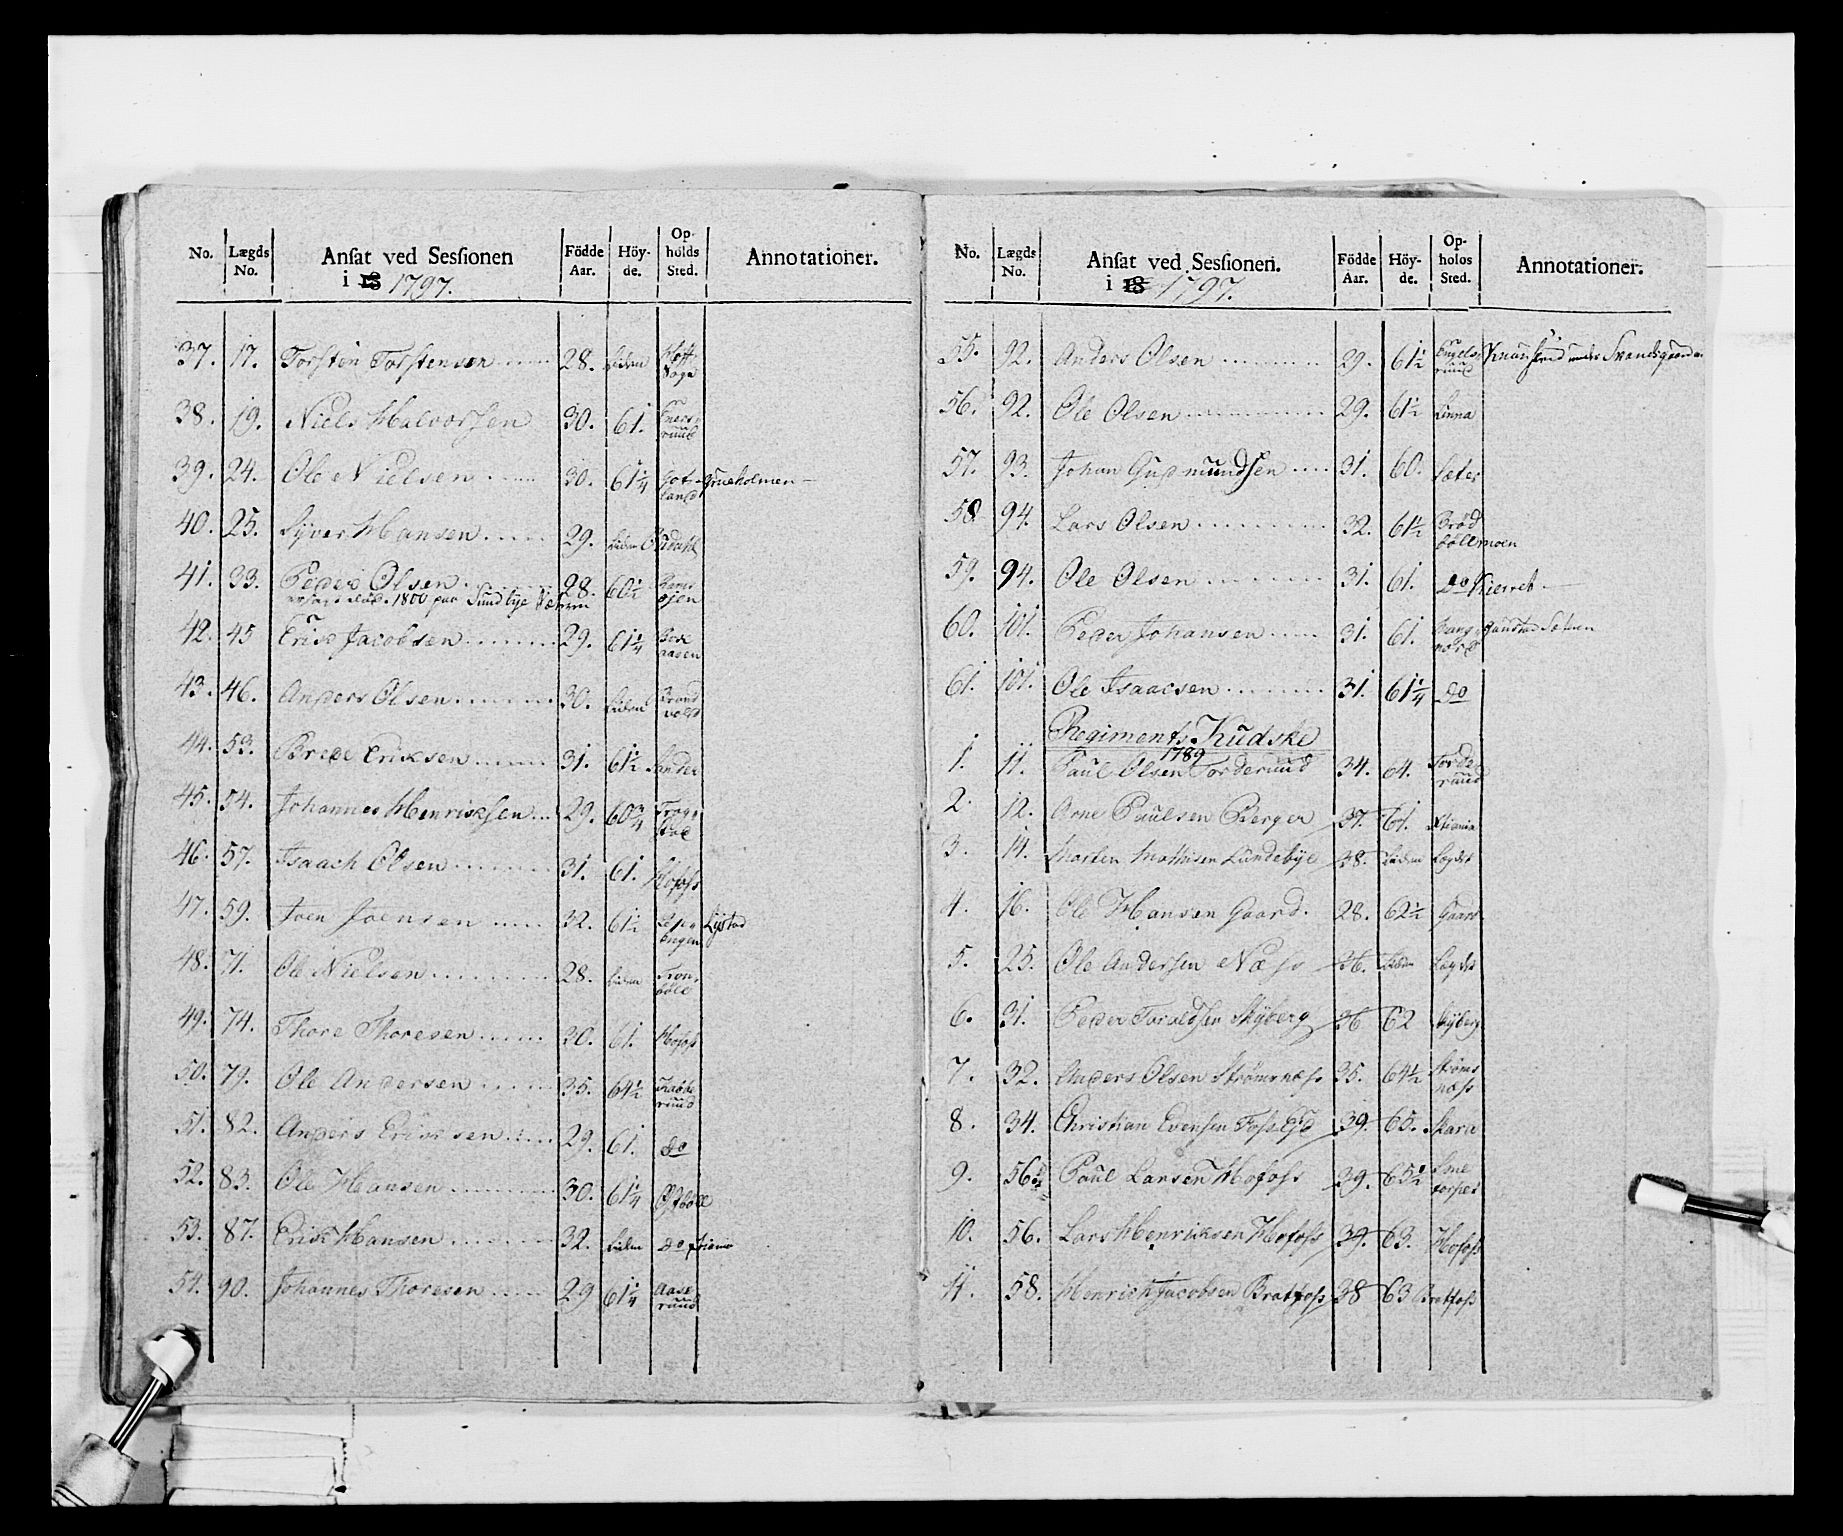 No. Lægds No. Ansat ved Sessionen i 18 1797. Födde Aar. Höyde. Opholds Sted. Annotationer.
37. 17. Torsten Torstensen 28. Liden
38. 19. Niels Halvorsen 30. 61.
39. 24. Ole Nielsen 30. 61 1/4
40. 25. Syver Hansen 29. Liden
41. 33. Peder Olsen 28. 60 1/2
1800 paa Sundbye
42. 45 Erik Jacobsen 29. 61 1/4
43. 46. Anders Olsen 30. Liden Brandvold
44. 53. Brede Eriksen 31. 61 1/2 Sander
45. 54. Johannes Henriksen 29. 60 3/4
46. 57. Isaach Olsen 31. 61. Hofoss
47. 59. Joen Joensen 32. 61 1/2 Lystad
48. 71. Ole Nielsen 28. Liden
49. 74. Thore Thoresen 30. 61. Hofoss
50. 79. Ole Andersen 35. 64 1/2
51. 82. Anders Eriksen 29. 61. Do
52. 83. Ole Hansen 30. 61 1/4
53. 87. Erik Hansen 32. Liden Do
54. 90. Johannes Thoresen 29 61 1/4 Aaseruud
No. Lægds No. Ansat ved Sessionen. i 18 1797. Födde Aar. Höyde. Opholds Sted. Annotationer.
55. 92. Anders Olsen 29. 61 1/2
56. 92. Ole Olsen 29. 61 1/2 Linna
57. 93. Johan Gudmundsen 31. 60. Sæter
58. 94. Lars Olsen 32. 61 1/2 Brødbøllmoen
59. 94. Ole Olsen 31. 61. Do Kierret
60. 101. Peder Johansen 31. 61.
61. 101. Ole Isaacsen 31. 61 1/4 Do
Regiments Kudske
1789
1. 11. Paul Olsen Torderuud 34. 64. Torderuud
2. 12. Arne Paulsen Berger 37. 61.
3. 14. Morten Mathisen Lundebye 38. Liden Lægdet
4. 16. Ole Hansen Gaard. 28. 62 1/2 Gaard
5. 25. Ole Andersen Næss 36. Liden Lægdet
6. 31. Peder Taraldsen Skyberg 36 62 Skyberg
7. 32. Anders Olsen Strømsnæss 35. 64 1/2 Strømsnæss
8. 34. Christian Evensen Foss Ejd 39. 60. Skara
9. 56. Paul Larsen Hofoss 39. 65 1/2
10. 56. Lars Henriksen Hofoss 39. 63. Hofoss
11. 58. Henrich Jacobsen Bratfoss 38 63 Bratfoss